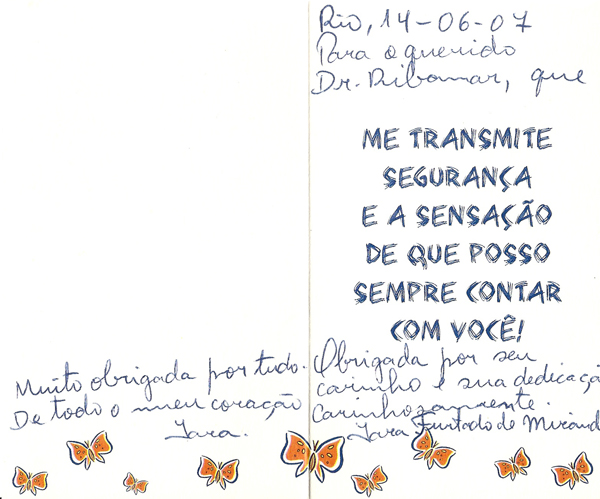 Rio, 14-06-07
Para o querido
Dr. Ribamar, que
ME TRANSMITE
SEGURANÇA
E A SENSAÇÃO
DE QUE POSSO
SEMPRE CONTAR
COM VOCÊ!
Obrigada por seu
carinho e sua dedicaçã
Carinhosamente.
Iara Furtado de Mirand
Muito obrigada por tudo.
De todo o meu coração
Iara.